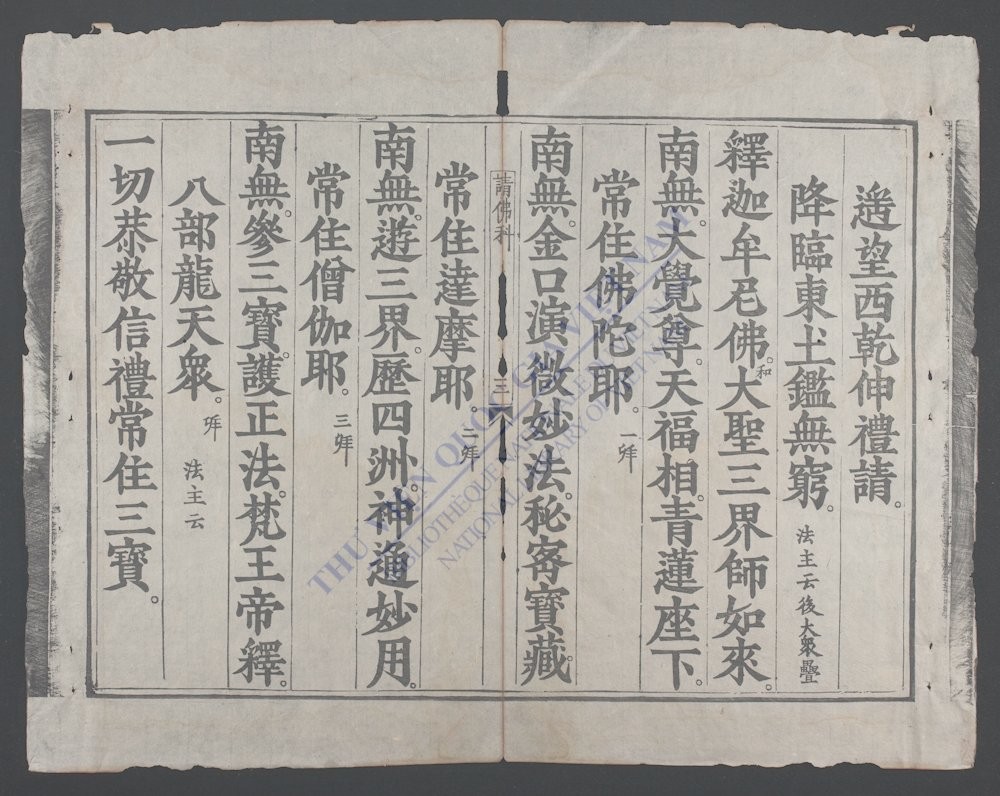 遙望西乾伸禮請。
降臨東土鑑無窮。法主云後大眾疊
釋迦牟尼佛。和大聖三界師如來。
南無。大覺尊。天福相。青蓮座下。
常住佛陀耶。一拜
南無。金口演微妙法。秘密寶藏。
請佛科 三
常住達摩耶。二拜
南無。遊三界。歷四洲。神通妙用。
常住僧伽耶。三拜
南無。參三寶。護正法。梵王帝釋。
八部龍天眾。拜 法主云
一切恭敬信禮常住三寶。
THƯ VIỆN QUỐC GIA VIỆT NAM
BIBLIOTHÈQUE NATIONALE DU VIETNAM
NATIONAL LIBRARY OF VIETNAM